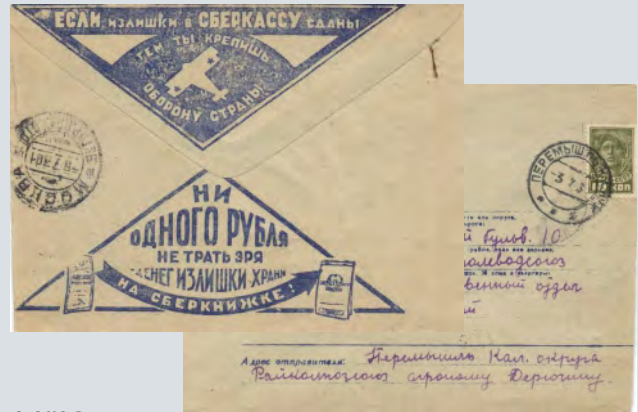 ЕСЛИ ИЗЛИШКИ В СБЕРКАССУ СДАНЫ
ТЕМ ТЫ КРЕПИШЬ
ОБОРОНУ СТРАНЫ!
МОСКВА
НИ
ОДНОГО РУБЛЯ
НЕ ТРАТЬ ЗРЯ
ДЕНЕГ ИЗЛИШКИ ХРАНИ
НА СБЕРКНИЖКЕ!
ПЕРЕМЫШЛЬ
-3.7.3
КОП
й бульв. 10
венный отдел
Адрес отправителя: Перемышль Кал. округа
Райколхозсоюз агроному Дерюгину.